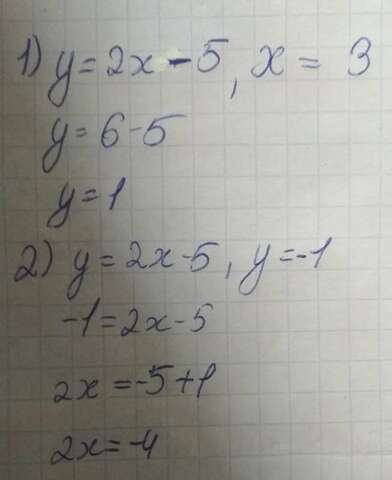 1) y = 2x - 5, x = 3
y = 6 - 5
y = 1
2) y = 2x - 5, y = -1
-1 = 2x - 5
2x = -5 + 1
2x = -4